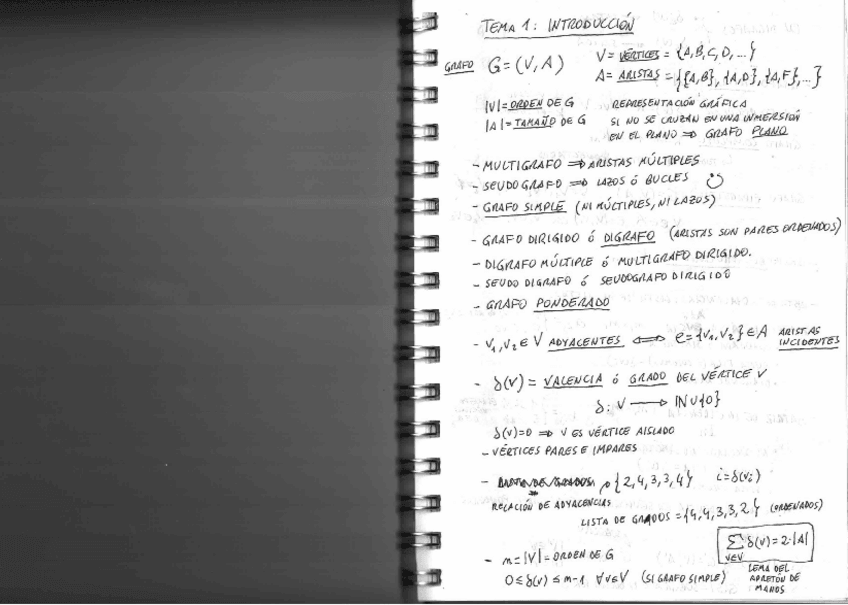 TEMA 1: INTRODUCCIÓN
GRAFO G=(V,A) V=VÉRTICES={A,B,C,D,...}
A=ARISTAS={{A,B},{A,D},{A,F},...}
|V|=ORDEN DE G REPRESENTACIÓN GRÁFICA
|A|=TAMAÑO DE G SI NO SE CRUZAN EN UNA INMERSIÓN
EN EL PLANO ⇒ GRAFO PLANO
- MULTIGRAFO ⇒ ARISTAS MÚLTIPLES
- SEUDOGRAFO ⇒ LAZOS Ó BUCLES
- GRAFO SIMPLE (NI MÚLTIPLES, NI LAZOS)
- GRAFO DIRIGIDO Ó DIGRAFO (ARISTAS SON PARES ORDENADOS)
- DIGRAFO MÚLTIPLE Ó MULTIGRAFO DIRIGIDO.
- SEUDO DIGRAFO Ó SEUDOGRAFO DIRIGIDO
- GRAFO PONDERADO
- V₁,V₂ ∈ V ADYACENTES ⟺ e={V₁,V₂} ∈ A ARISTAS
INCIDENTES
- δ(V) = VALENCIA Ó GRADO DEL VÉRTICE V
δ: V → ℕ∪{0}
δ(V)=0 ⇒ V ES VÉRTICE AISLADO
- VÉRTICES PARES E IMPARES
- {2,4,3,3,4} i=δ(Vi)
RELACIÓN DE ADYACENCIAS
LISTA DE GRADOS={4,4,3,3,2} (ORDENADOS)
- n=|V|=ORDEN DE G
0≤δ(V)≤n-1 ∀v∈V (SI GRAFO SIMPLE)
∑ δ(V)=2·|A|
V∈V
LEMA DEL
APRETÓN DE
MANOS